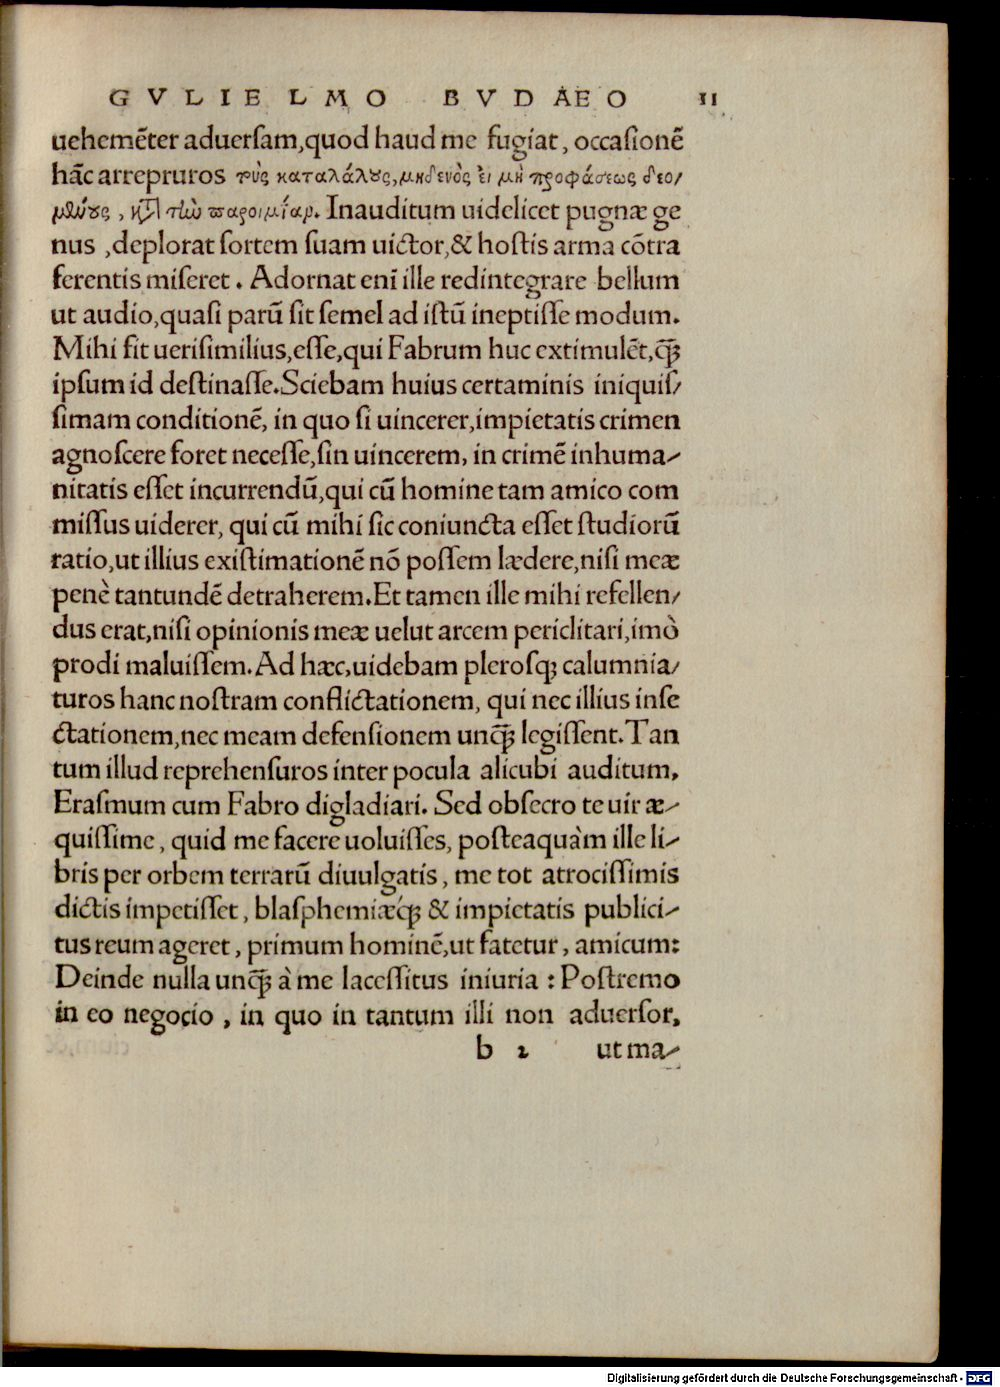 GVLIELMO BVDAEO 11
uehemẽter aduersam,quod haud me fugiat, occasionẽ
hãc arrepturos τοὺς καταλάλους,μηδενὸς εἰ μὴ προφάσεως δεο/
μένους, κατὰ τὴν παροιμίαν. Inauditum uidelicet pugnæ ge
nus ,deplorat sortem suam uictor,& hostis arma cõtra
ferentis miseret. Adornat enĩ ille redintegrare bellum
ut audio,quasi parũ sit semel ad istũ ineptisse modum.
Mihi fit uerisimilius,esse,qui Fabrum huc extimulẽt,ꝗ̃ꝫ
ipsum id destinasse.Sciebam huius certaminis iniquis/
simam conditionẽ, in quo si uincerer,impietatis crimen
agnoscere foret necesse,sin uincerem, in crimẽ inhuma/
nitatis esset incurrendũ,qui cũ homine tam amico com
missus uiderer, qui cũ mihi sic coniuncta esset studiorũ
ratio,ut illius existimationẽ nõ possem lædere,nisi meæ
penè tantundẽ detraherem.Et tamen ille mihi refellen/
dus erat,nisi opinionis meæ uelut arcem periclitari,imò
prodi maluissem.Ad hæc,uidebam plerosqꝫ calumnia/
turos hanc nostram conflictationem, qui nec illius inse
ctationem,nec meam defensionem unꝗ̃ꝫ legissent.Tan
tum illud reprehensuros inter pocula alicubi auditum,
Erasmum cum Fabro digladiari. Sed obsecro te uir æ/
quissime, quid me facere uoluisses, posteaquàm ille li/
bris per orbem terrarũ diuulgatis, me tot atrocissimis
dictis impetisset, blasphemiæq́ꝫ & impietatis publici/
tus reum ageret, primum hominẽ,ut fatetur, amicum:
Deinde nulla unꝗ̃ꝫ à me lacessitus iniuria : Postremo
in eo negocio , in quo in tantum illi non aduersor,
b 2 ut ma/
Digitalisierung gefördert durch die Deutsche Forschungsgemeinschaft - DFG